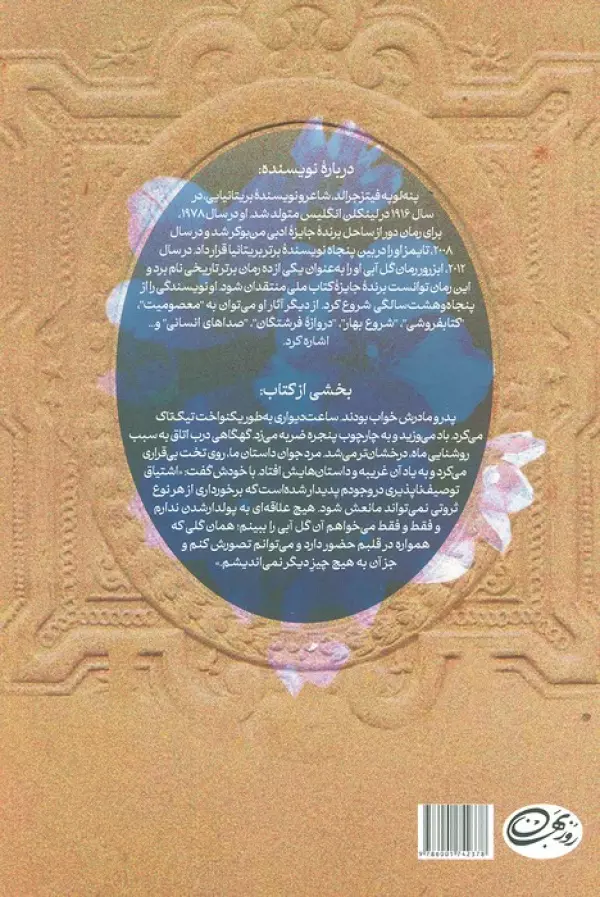 دربارهٔ نویسنده:
پنه‌لوپه فیتزجرالد، شاعر و نویسندهٔ بریتانیایی، در
سال ۱۹۱۶ در لینکلن انگلیس متولد شد. او در سال ۱۹۷۸،
برای رمان دور از ساحل برندهٔ جایزهٔ ادبی من‌بوکر شد و در سال
۲۰۰۸، تایمز او را در بین پنجاه نویسندهٔ برتر بریتانیا قرار داد. در سال
۲۰۱۲، ابزرور رمان گل آبی او را به‌عنوان یکی از ده رمان برتر تاریخی نام برد و
این رمان توانست برندهٔ جایزهٔ کتاب ملی منتقدان شود. او نویسندگی را از
پنجاه‌و‌هشت‌سالگی شروع کرد. از دیگر آثار او می‌توان به "معصومیت"،
"کتابفروشی"، "شروع بهار"، "دروازهٔ فرشتگان"، "صداهای انسانی" و...
اشاره کرد.
بخشی از کتاب:
پدر و مادرش خواب بودند. ساعت‌دیواری به‌طور یکنواخت تیک‌تاک
می‌کرد. باد می‌وزید و به چارچوب پنجره ضربه می‌زد. گهگاهی درب اتاق به سبب
روشنایی ماه، درخشان‌تر می‌شد. مرد جوان داستان ما، روی تخت بی‌قراری
می‌کرد و به یاد آن غریبه و داستان‌هایش افتاد. با خودش گفت: «اشتیاق
توصیف‌ناپذیری در وجودم پدیدار شده‌است که برخورداری از هر نوع
ثروتی نمی‌تواند مانعش شود. هیچ علاقه‌ای به پولدارشدن ندارم
و فقط و فقط می‌خواهم آن گل آبی را ببینم؛ همان گلی که
همواره در قلبم حضور دارد و می‌توانم تصورش کنم و
جز آن به هیچ چیز دیگر نمی‌اندیشم.»
روزبهان
9 786001 742378